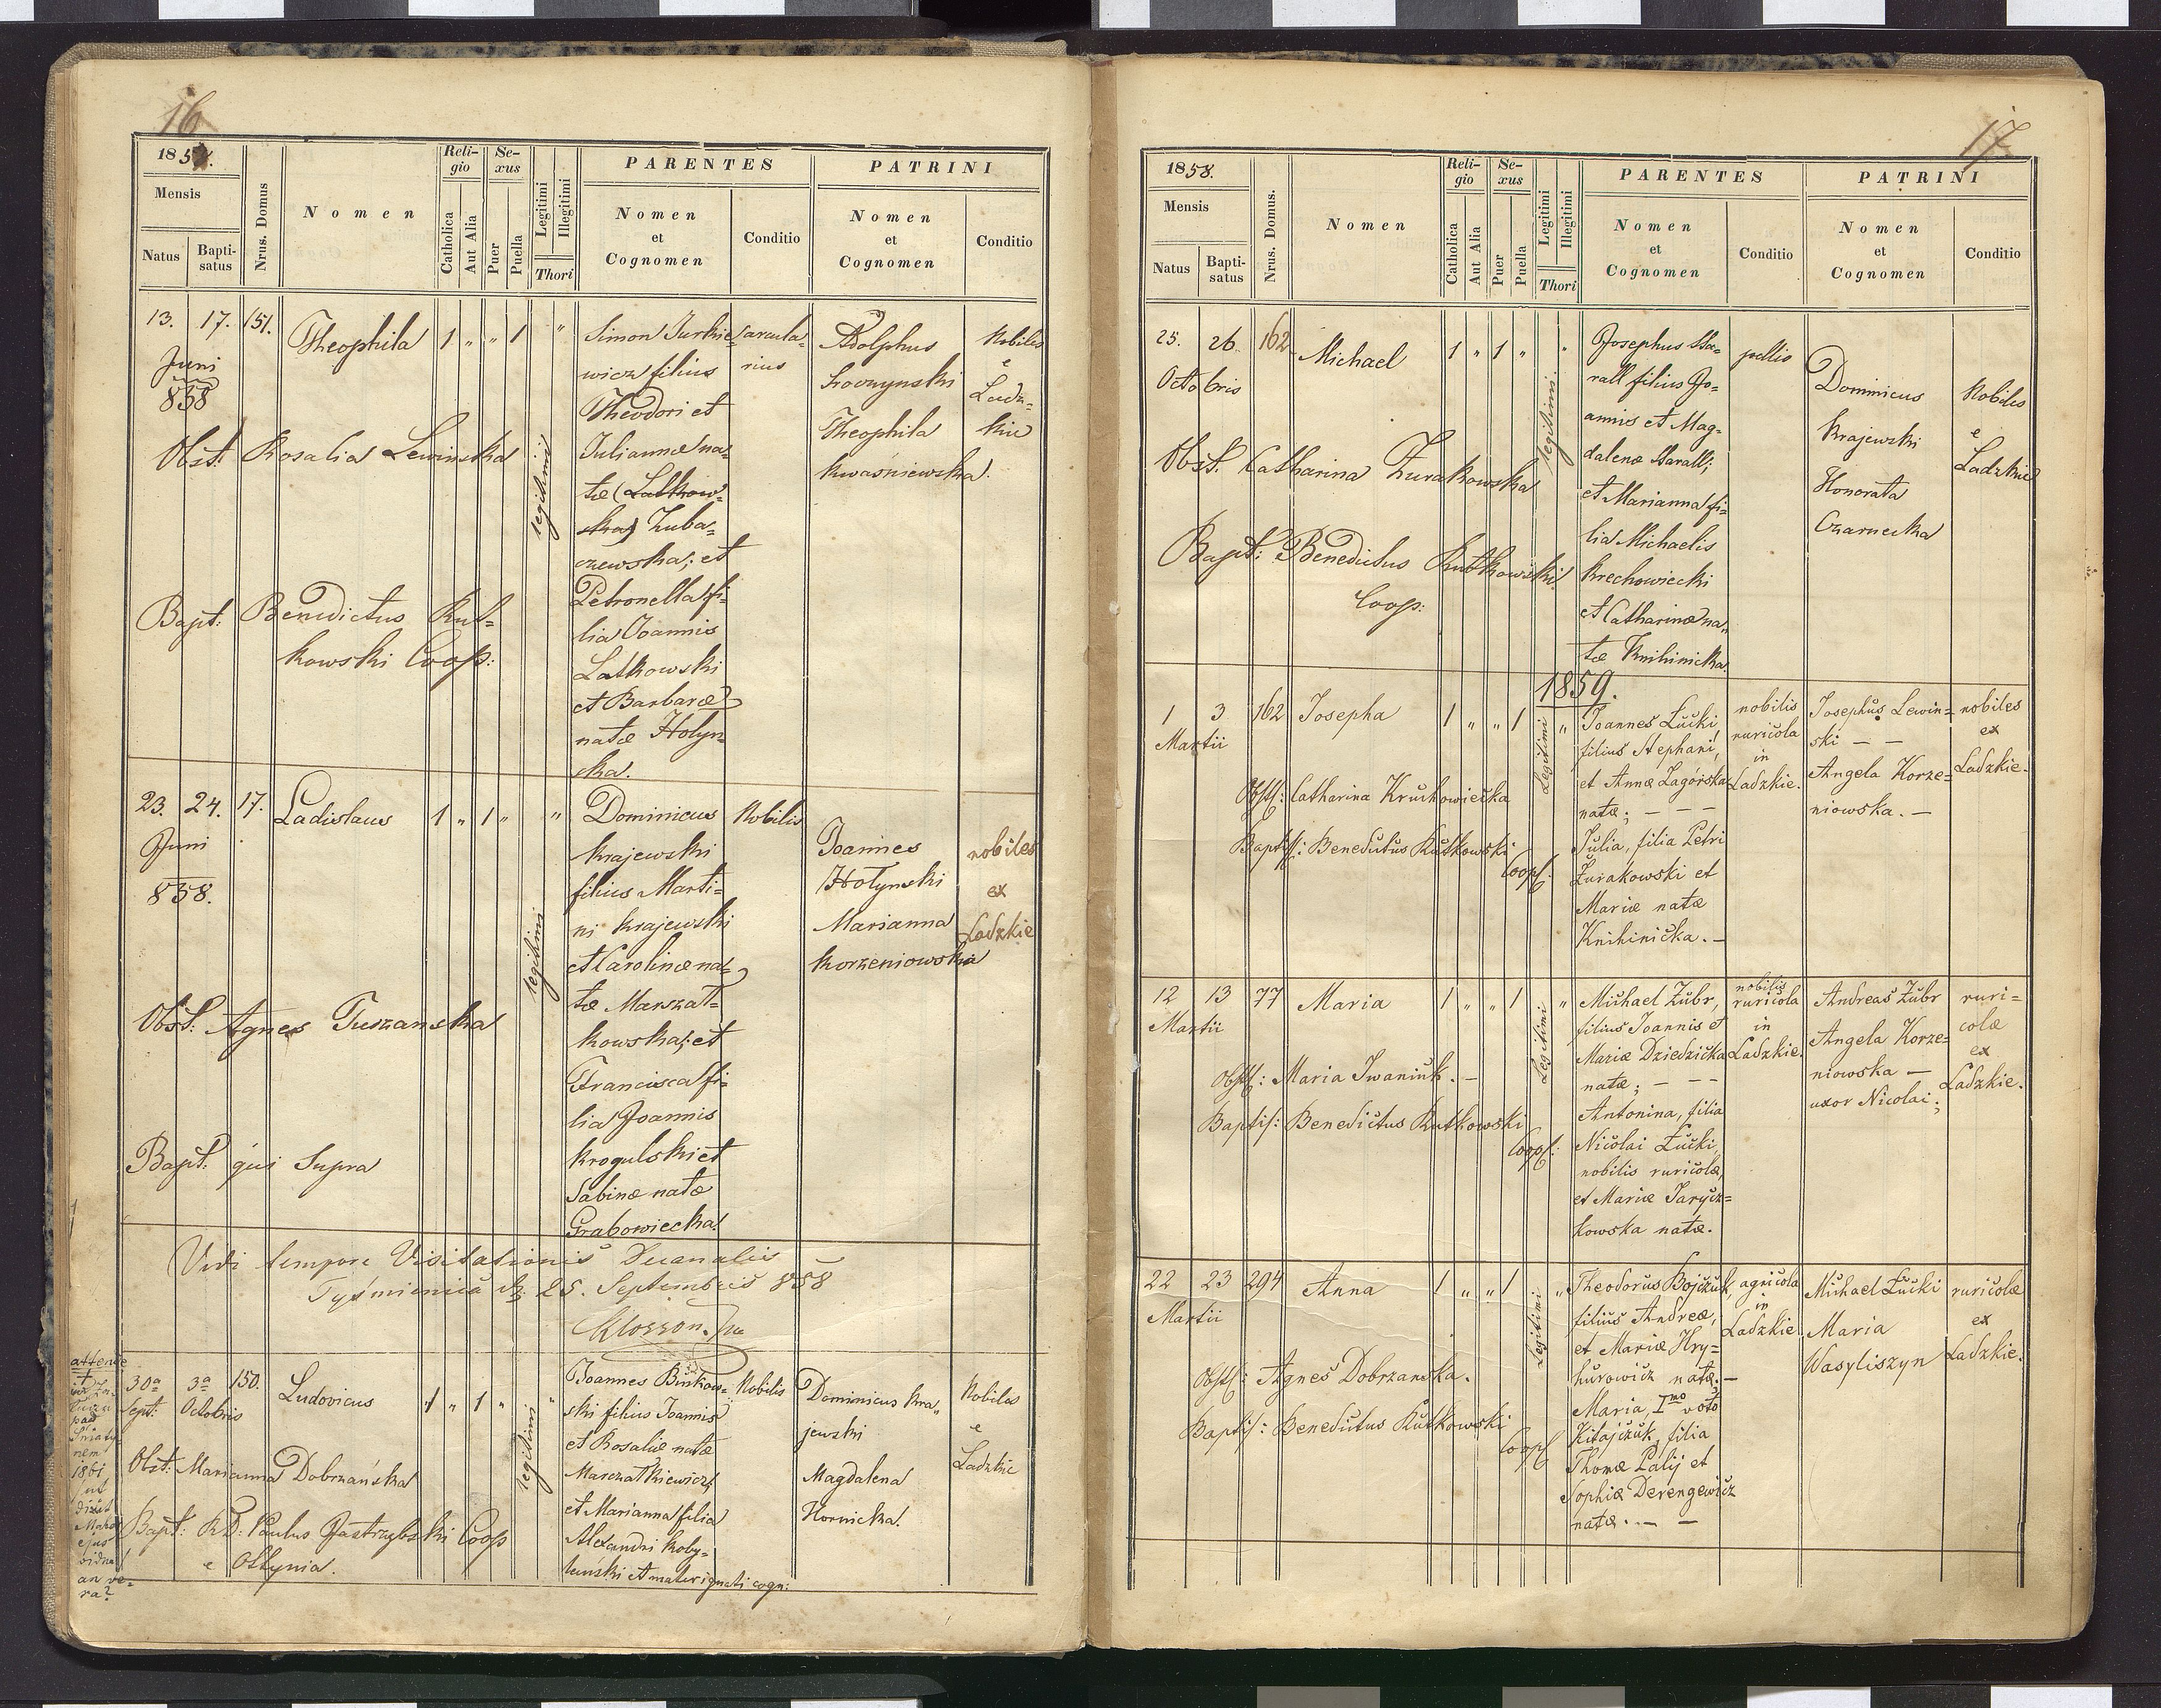 16
1858.
Mensis
Natus
Bapti-
satus
Nrus. Domus
Nomen
Reli-
gio
Catholica
Aut Alia
Se-
xus
Puer
Puella
Legitimi
Illegitimi
Thori
PARENTES
Nomen
et
Cognomen
Conditio
PATRINI
Nomen
et
Cognomen
Conditio
13. 17. 151. Theophila 1 " " 1 "
Juni
858
Obst: Rosalia Lewinska
Bapt: Benedictus Kut=
kowski Coop:
legitimi
Simon Jurkie=
wicz filius
Theodori et
Julianna na=
tæ (Latkow=
ska) Zuba=
czewska; et
Petronella fi=
lia Joannis
Latkowski
et Barbaræ
natæ Holyn=
ska.
arcula=
rius
Adolphus
Loczynski
Theophila
Kwaśniewska.
Nobiles
e
Ladz=
kie
23. 24. 17. Ladislaus 1 " 1 " "
Juni
858.
Obst: Agnes Tuszanska
Bapt: qui Supra
legitimi
Dominicus
Krajewski
filius Marti=
ni Krajewski
et Carolinæ na=
tæ Marszał=
kowska; et
Francisca fi=
lia Joannis
Krogulski et
Sabinæ natæ
Grabowiecka.
Nobilis
Joannes
Hołynski
Marianna
Korzeniowska
nobiles
ex
Ladzkie
Vidi tempore Visitationis Decanalis
Tyśmienica d. 25. Septembris 858
30a 3a 150. Ludovicus 1 " 1 " "
Sept: Octobris
Obst: Marianna Dobrzańska
Bapt: RD: Paulus Jastrzębski Coop
e Ottynia.
legitimi
Joannes Bińkow=
ski filius Joannis
et Rosaliæ natæ
Marczałkiewicz,
et Marianna filia
Alexandri Koby=
lański et mater ignoti cogn:
Nobilis
Dominicus Kra=
jewski
Magdalena
Hornicka.
Nobiles
e
Ladzkie
attende
pad
Sniaty=
nem
1861
ejus
vidua
an ve=
ra?
17
1858.
Mensis
Natus
Bapti-
satus
Nrus. Domus.
Nomen
Reli-
gio
Catholica
Aut Alia
Se-
xus
Puer
Puella
Legitimi
Illegitimi
Thori
PARENTES
Nomen
et
Cognomen
Conditio
PATRINI
Nomen
et
Cognomen
Conditio
25. 26. 162 Michael 1 " 1 " "
Octobris
Obst. Catharina Zurakowska
Bapt: Benedictus Kutkowski
Coop:
legitimi
Josephus Ha=
rall filius Jo=
annis et Mag=
dalenæ Harall;
et Marianna fi=
lia Michaelis
Krechowiecki
et Catharinæ na=
tæ Knihinicka.
pellio
Dominicus
Krajewski
Honorata
Czarnecka
Nobiles
e
Ladzkie
1859.
1 3 162 Josepha 1 " " 1 "
Martii
Obst: Catharina Kruchowiecka
Baptis: Benedictus Kutkowski
Coop:
Legitimi
Joannes Łucki
filius Stephani,
et Annæ Zagórska
natæ; — —
Julia, filia Petri
Żurakowski et
Mariæ natæ
Knihinicka. —
nobilis
ruricola
in
Ladzkie.
Josephus Lewin=
ski — —
Angela Korze=
niowska. —
nobiles
ex
Ladzkie.
12 13 77 Maria 1 " " 1 "
Martii
Obst: Maria Iwaniuk. —
Baptis: Benedictus Kutkowski
Coop:
Legitimi
Michael Zubr,
filius Joannis et
Mariæ Dziedzicka
natæ; — —
Antonina, filia
Nicolai Łucki,
nobilis ruricolæ,
et Mariæ Jarycz=
kowska natæ.
nobilis
ruricola
in
Ladzkie.
Andreas Zubr
Angela Korze=
niowska —
uxor Nicolai;
ruri=
colæ
ex
Ladzkie.
22 23 294 Anna 1 " " 1 "
Martii
Obst: Agnes Dobrzanska.
Baptis: Benedictus Kutkowski
Coop
Legitimi
Theodorus Bojczuk,
filius Andreæ,
et Mariæ Hry=
hurowicz natæ. —
Maria, Imo voto
Kitajczuk, filia
Thomæ Palij et
Sophiæ Derengewicz
natæ. — —
agricola
in
Ladzkie.
Michael Łucki
Maria
Wasyliszyn
ruricolæ
ex
Ladzkie.